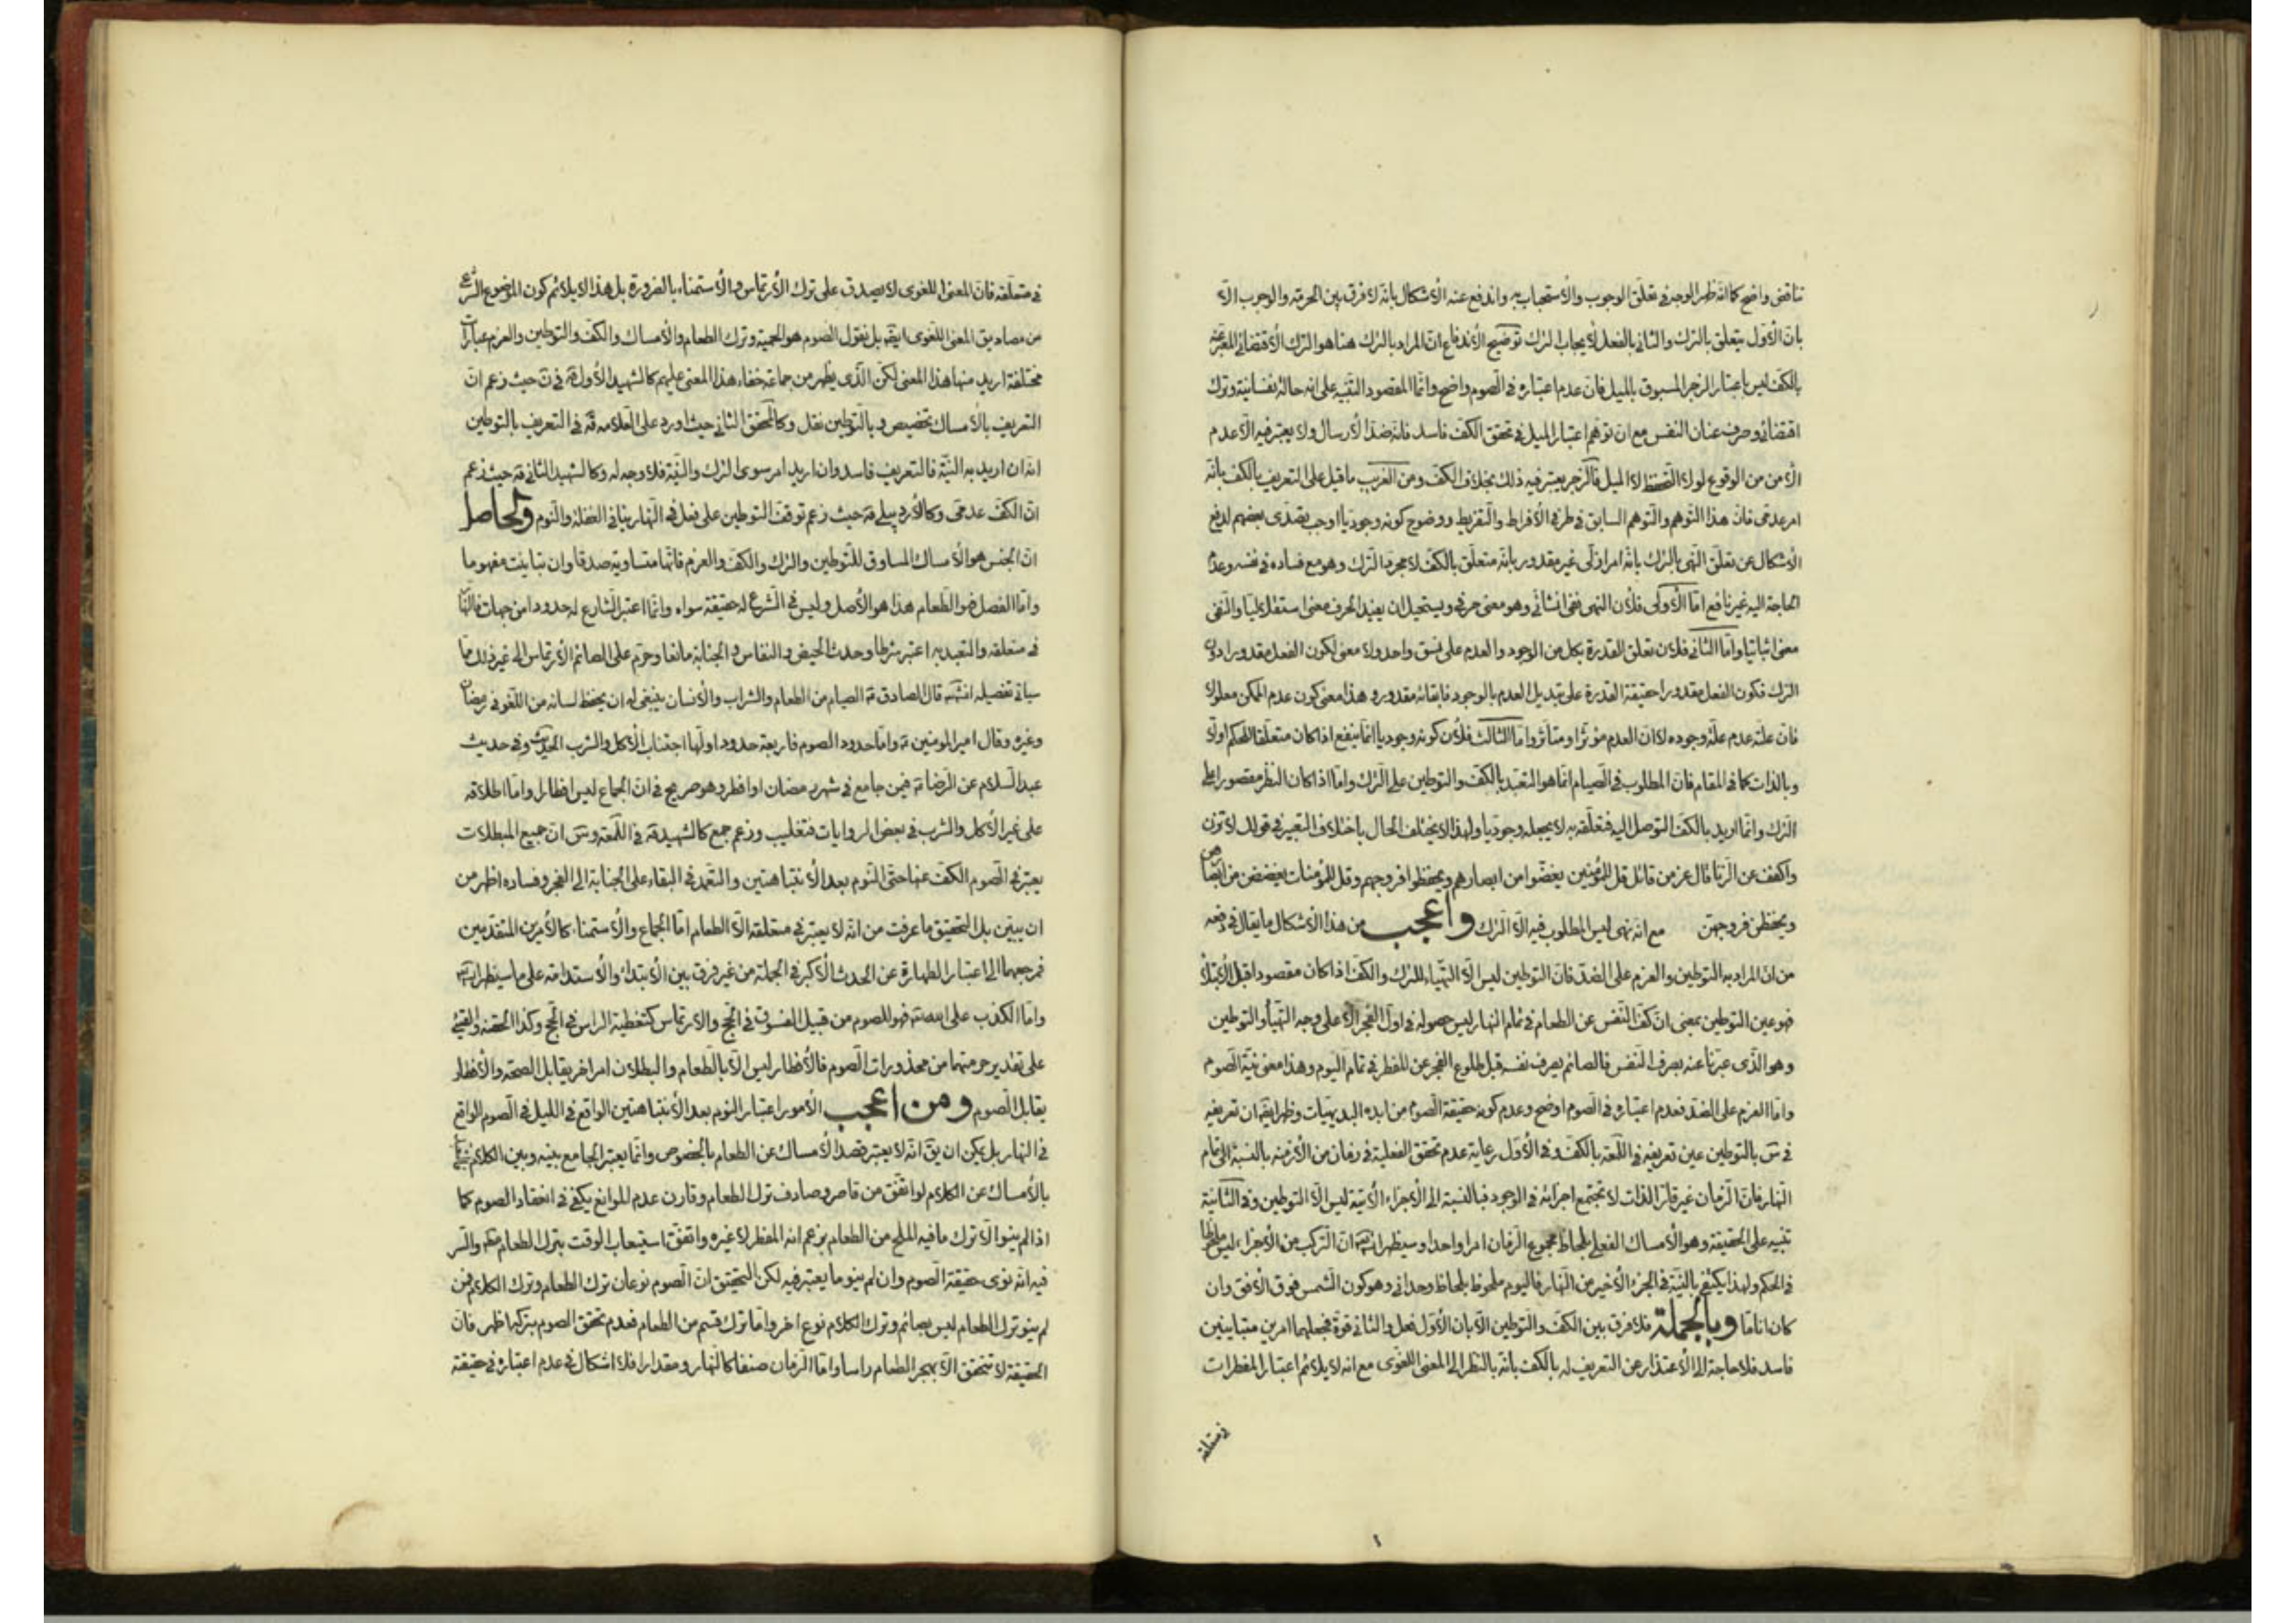 تناقض واضح كما انه ظهر الوجه في تعلق الوجوب والاستحباب به واندفع عنه الاشكال بانه لا فرق بين الحرمة والوجوب الا
بان الاول يتعلق بالترك والثاني بالفعل لايجاب الترك توضيح الاندفاع ان المراد بالترك هنا هو الترك الاقتضائي المعبر عنه
بالكف ليس باعتبار الزجر المسبوق بالميل فان عدم اعتباره في الصوم واضح وانما المقصود التنبيه على انه حالة نفسانية وترك
اقتضائي وصرف عنان النفس مع ان توهم اعتبار الميل في تحقق الكف فاسد فانه ضد الارسال ولا يعتبر فيه الا عدم
الامن من الوقوع لولا التحفظ لا الميل فالزجر يعتبر فيه ذلك بخلاف الكف ومن الغريب ما قيل على التعريف بالكف بانه
امر عدمى فان هذا التوهم والتوهم السابق في طرفي الافراط والتفريط ووضوح كونه وجوديا اوجب تصدى بعضهم لدفع
الاشكال عن تعلق النهى بالترك بانه امر ازلى غير مقدور بانه متعلق بالكف لا مجرد الترك وهو مع فساده في نفسه وعدم
الحاجة اليه غير نافع اما الاولى فلان النهى نفى انشائى وهو معنى حرفى ويستحيل ان يفيد الحرف معنى استقلاليا والنفى
معنى اثباتيا واما الثانى فلان تعلق القدرة بكل من الوجود والعدم على نسق واحد ولا معنى لكون الفعل مقدورا دون
الترك فكون الفعل مقدورا حقيقة القدرة على تبديل العدم بالوجود فابقائه مقدور و هذا معنى كون عدم الممكن معلولا
فان علته عدم علة وجوده لا ان العدم مؤثر او متاثر واما الثالث فلان كونه وجوديا انما ينفع اذا كان متعلقا للحكم اولا
وبالذات كما في المقام فان المطلوب في الصيام انما هو التعبد بالكف والتوطين على الترك واما اذا كان النظر مقصورا على
الترك وانما اريد بالكف التوصل اليه فتعلقه به لا يجعله وجوديا ولهذا لا يختلف الحال باختلاف التعبير في قولك لا تزن
واكفف عن الزنا قال عز من قائل قل للمؤمنين يغضوا من ابصارهم ويحفظوا فروجهم وقل للمؤمنات يغضضن من ابصارهن
ويحفظن فروجهن مع انه نهى ليس المطلوب فيه الا الترك واعجب من هذا الاشكال ما يقال في دفعه
من ان المراد به التوطين والعزم على الضد فان التوطين ليس الا التهياء للترك والكف اذا كان مقصودا قبل الابتلاء
فهو عين التوطين بمعنى ان كف النفس عن الطعام في تمام النهار ليس حصوله في اول الفجر الا على وجه التهيأ والتوطين
وهو الذى عبرنا عنه بصرف النفس فالصائم يصرف نفسه قبل طلوع الفجر عن المفطر في تمام اليوم وهذا معنى نية الصوم
واما العزم على الضد فعدم اعتباره في الصوم اوضح وعدم كونه حقيقة الصوم من ابده البديهيات وظهر ايضا ان تعريفه
في س بالتوطين عين تعريفه في اللمعة بالكف وفي الاول رعاية عدم تحقق الفعلية في زمان من الازمنة بالنسبة الى تمام
النهار فان الزمان غير قار الذات لا تجتمع اجزائه في الوجود فبالنسبة الى الاجزاء الاتية ليس الا التوطين وفي الثانية
تنبيه على الحقيقة وهو الامساك الفعلى بلحاظ مجموع الزمان امرا واحدا وسيظهر انش ان التركب من الاجزاء ليس ملحوظا
في الحكم ولهذا يكتفى بالنية في الجزء الاخير من النهار فاليوم ملحوظ بلحاظ وحدانى وهو كون الشمس فوق الافق وان
كان اناما وبالجملة فلا فرق بين الكف والتوطين الا بان الاول فعل والثانى قوة فجعلهما امرين متباينين
فاسد فلا حاجة الى الاعتذار عن التعريف له بالكف بانه بالنظر الى المعنى اللغوى مع انه لا يلائم اعتبار المفطرات
في متعلقه
في متعلقه فان المعنى اللغوى لا يصدق على ترك الارتماس والاستمناء بالضرورة بل هذا لا يلائم كون الموضوع الشرعى
من مصاديق المعنى اللغوى ايضا بل نقول الصوم هو الحمية وترك الطعام والامساك والكف والتوطين والعزم عبارات
مختلفة اريد منها هذا المعنى لكن الذى يظهر من جماعة خفاء هذا المعنى عليهم كالشهيد الاول حيث زعم ان
التعريف بالامساك تخصيص وبالتوطين نقل وكالمحقق الثاني حيث اورد على العلامة في التعريف بالتوطين
انه ان اريد به النية فالتعريف فاسد وان اريد امر سوى الترك والنية فلا وجه له وكالشهيد الثانى حيث زعم
ان الكف عدمى وكالاردبيلى حيث زعم توقف التوطين على فعل في النهار ينافي الغفلة والنوم والحاصل
ان الجنس هو الامساك المساوق للتوطين والترك والكف والعزم فانها متساوية صدقا وان تباينت مفهوما
واما الفصل فهو الطعام هذا هو الاصل وليس في الشرع له حقيقة سواه وانما اعتبر الشارع له حدودا من جهات
في متعلقه والتعبد به اعتبر شرطا وحدث الحيض والنفاس والجنابة مانعا وحرم على الصائم الارتماس الى غير ذلك مما
سياتى تفصيله انش قال الصادق الصيام من الطعام والشراب والانسان ينبغى له ان يحفظ لسانه من اللغو في رمضان
وغيره وقال امير المومنين واما حدود الصوم فاربعة حدود اولها اجتناب الاكل والشرب الحديث وفي حديث
عبد السلام عن الرضا فيمن جامع في شهر رمضان او افطر وهو صريح في ان الجماع ليس افطارا واما اطلاقه
على غير الاكل والشرب في بعض الروايات فتغليب وزعم جمع كالشهيد في اللمعة وس ان جميع المبطلات
يعتبر في الصوم الكف عنها حتى النوم بعد الانتباهتين والتعمد في البقاء على الجنابة الى الفجر وفساده اظهر من
ان يبين بل التحقيق ما عرفت من انه لا يعتبر في متعلقه الا الطعام اما الجماع والاستمناء كالامرين المتقدمين
فمرجعهما الى اعتبار الطهارة عن الحدث الاكبر في الجملة من غير فرق بين الابتداء والاستدامة على ما سيظهر انش
واما الكذب على الله فهو للصوم من قبيل الفسوق في الحج والارتماس كتغطية الراس في الحج وكذا الحقنة والقئ
على تقدير حرمتهما من محذورات الصوم فالافطار ليس الا بالطعام والبطلان امر اخر يقابل الصحة والافطار
يقابل الصوم ومن اعجب الامور اعتبار النوم بعد الانتباهتين الواقع في الليل في الصوم الواقع
في النهار بل يمكن ان يق انه لا يعتبر قصد الامساك عن الطعام بالخصوص وانما يعتبر الجامع بينه وبين الكلام
بالامساك عن الكلام لو اتفق من قاصر وصادف ترك الطعام وقارن عدم الموانع يكفى في انعقاد الصوم كما
اذا لم ينو الا ترك ما فيه الملح من الطعام بزعم انه المفطر لا غيره واتفق استيعاب الوقت بترك الطعام والسر
فيه انه نوى حقيقة الصوم وان لم ينو ما يعتبر فيه لكن التحقيق ان الصوم نوعان ترك الطعام وترك الكلام فمن
لم ينو ترك الطعام ليس بصائم وترك الكلام نوع اخر واما ترك قسم من الطعام فعدم تحقق الصوم بتركه اظهر فان
الحقيقة لا تتحقق الا بهجر الطعام راسا واما الزمان صنفا كالنهار ومقدارا فلا اشكال في عدم اعتباره في حقيقة